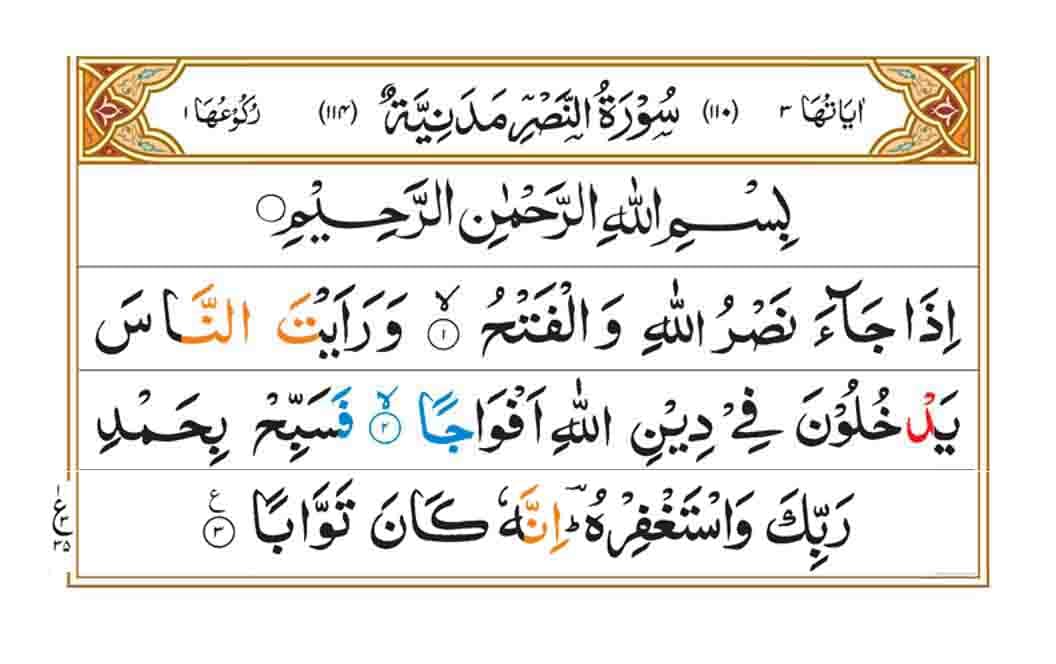 اٰيَاتُهَا ٣ (١١٠) سُوْرَةُ النَّصْرِ مَدَنِيَّةٌ (١١٤) رُكُوْعُهَا ١
بِسْمِ اللّٰهِ الرَّحْمٰنِ الرَّحِيْمِ
اِذَا جَآءَ نَصْرُ اللّٰهِ وَالْفَتْحُ ۙ ١ وَرَاَيْتَ النَّاسَ
يَدْخُلُوْنَ فِيْ دِيْنِ اللّٰهِ اَفْوَاجًا ۙ ٢ فَسَبِّحْ بِحَمْدِ
رَبِّكَ وَاسْتَغْفِرْهُ ؕ اِنَّهٗ كَانَ تَوَّابًا ٣ ع
١
ع ٣
٣٥